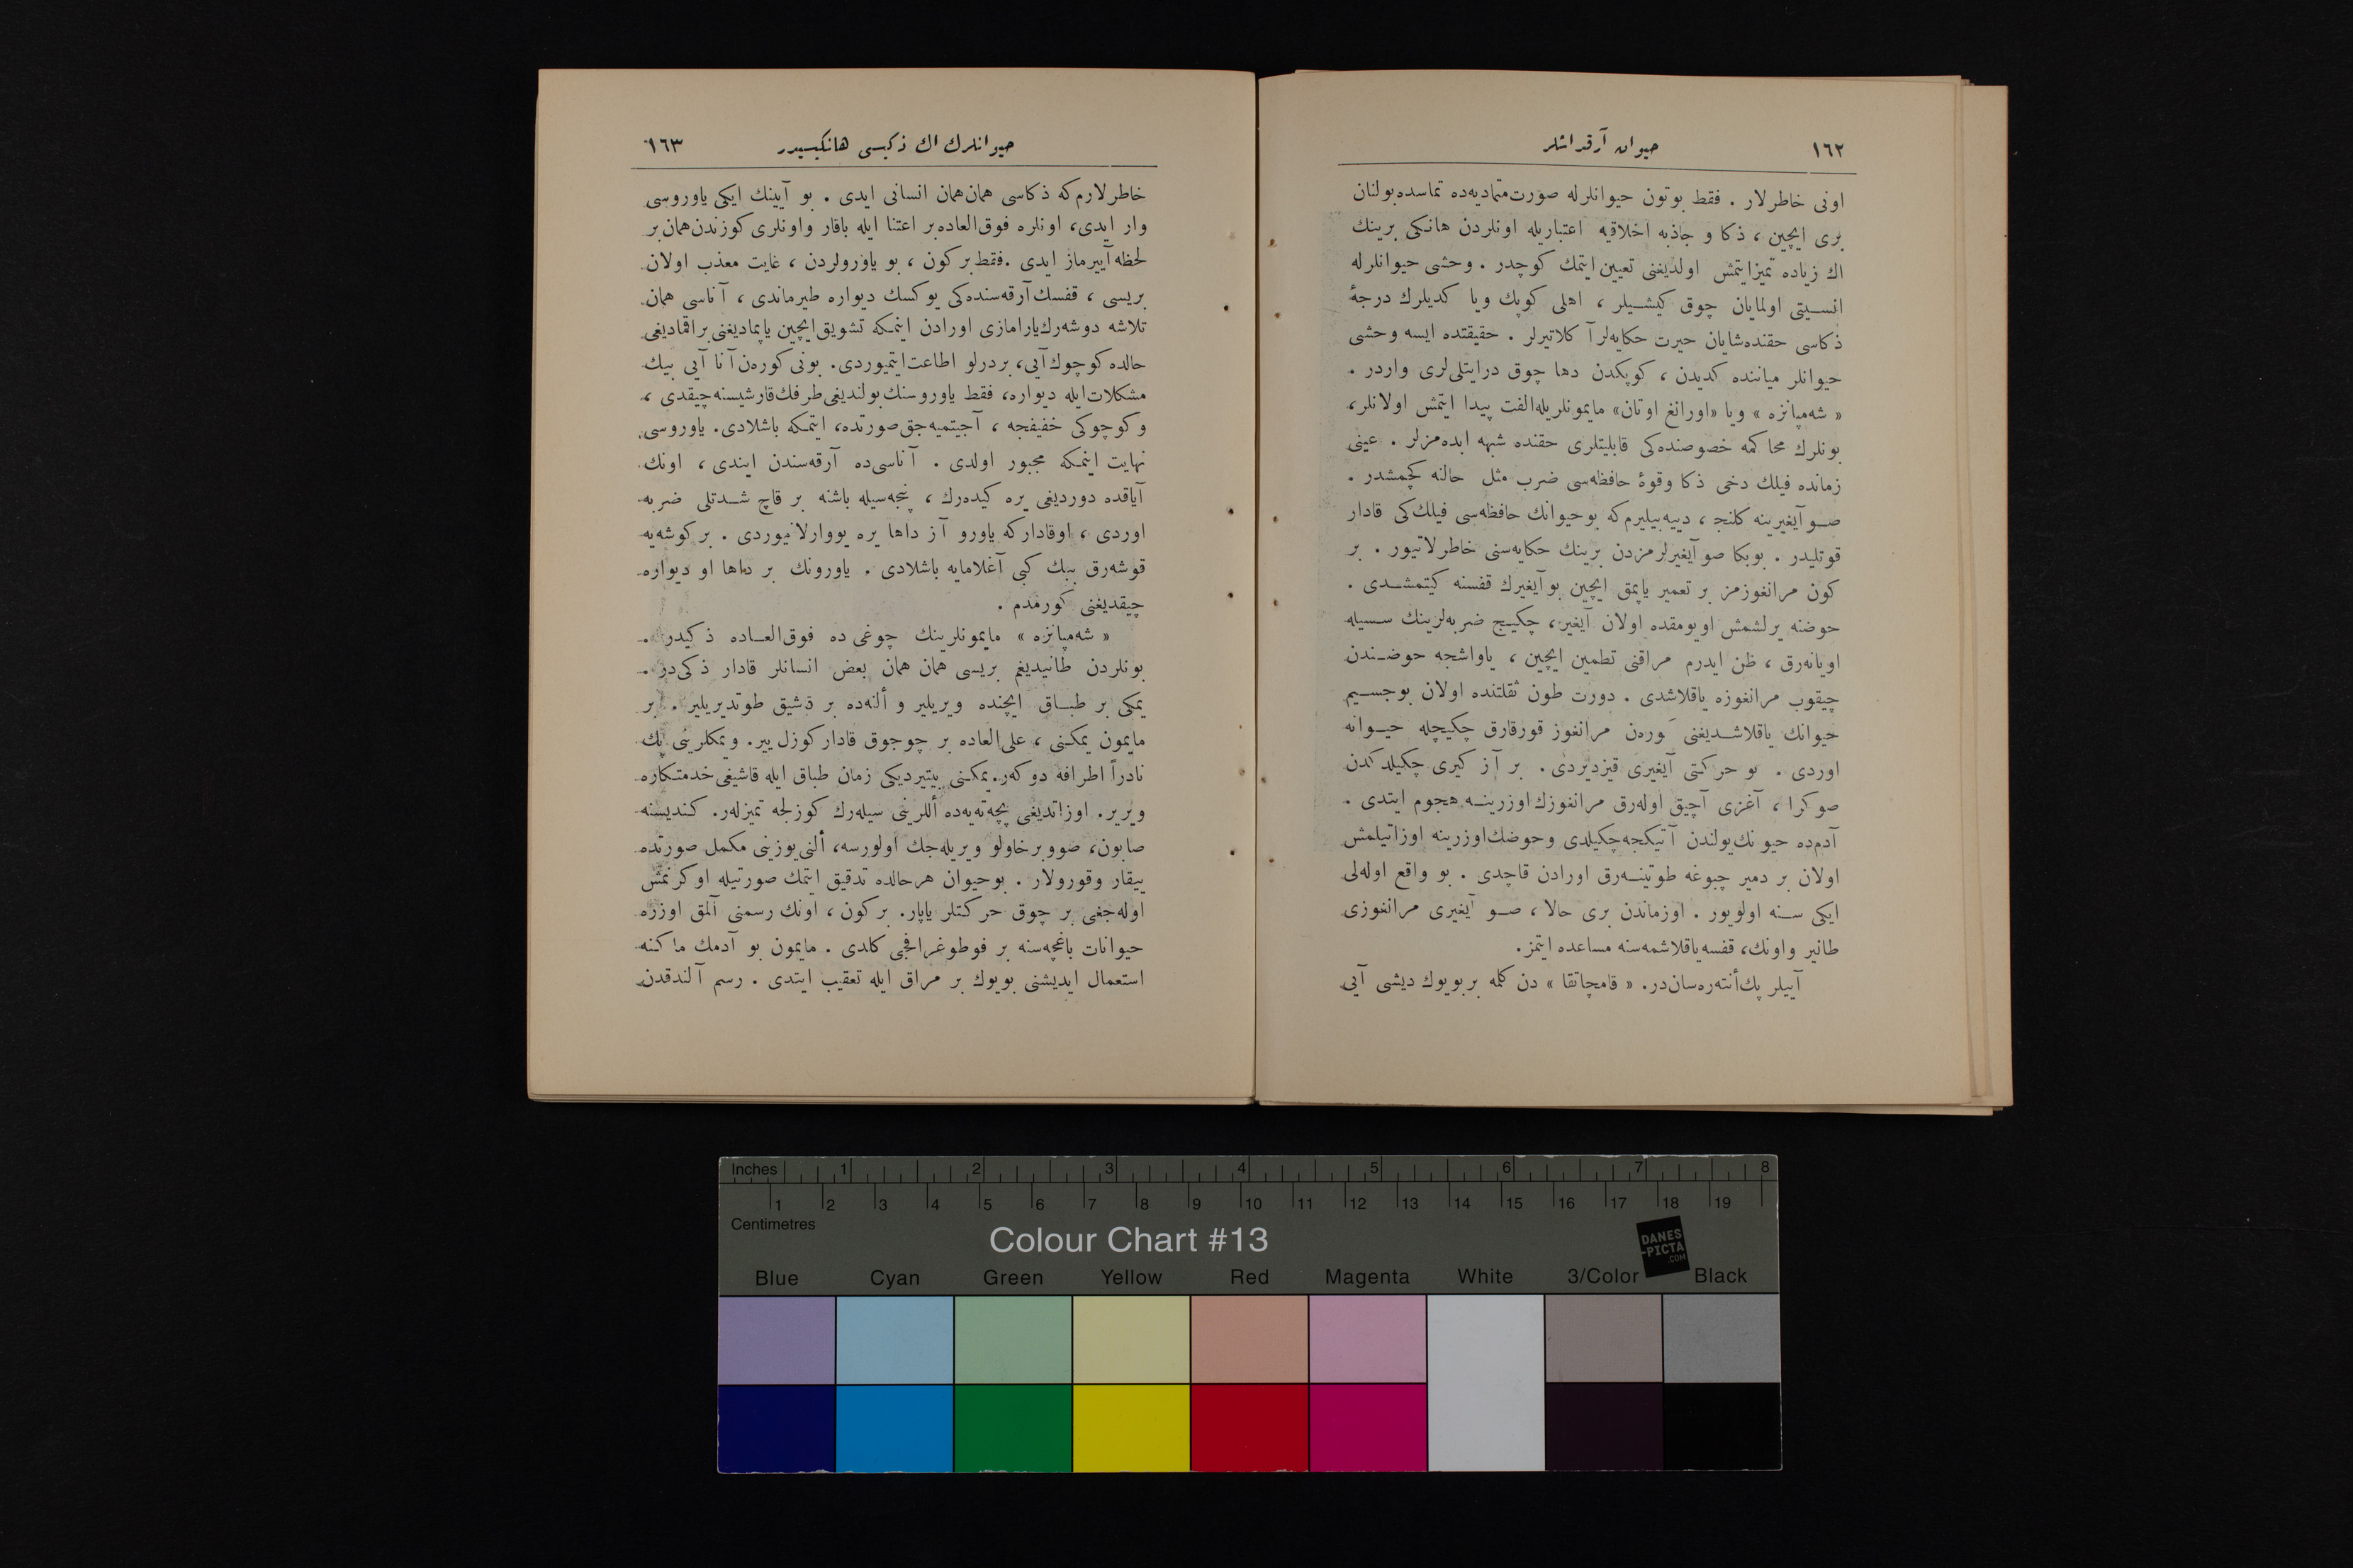 ١٦٢
حيوان آرقداشلر
اونی خاطرلار . فقط بوتون حيوانلرله صورت متماديه‌ده تماسده بولنان
بری ايچين ، ذكا و جاذبه اخلاقيه اعتباريله اونلردن هانكی برينك
اك زياده تميزايتمش اولديغنی تعيين ايتمك كوچدر . وحشی حيوانلرله
انسيتی اولمايان چوق كيشيلر ، اهلی كوپك ويا كديلرك درجۀ
ذكاسی حقنده شايان حيرت حكايه‌لر آ كلاتيرلر . حقيقتده ايسه وحشی
حيوانلر مياننده كديدن ، كوپكدن دها چوق درايتلی‌لری واردر .
« شه‌مپانزه » ويا «اورانغ اوتان» مايمونلريله الفت پيدا ايتمش اولانلر،
بونلرك محاكمه خصوصنده‌كی قابليتلری حقنده شبهه ايده‌مزلر . عينی
زمانده فيلك دخی ذكا وقوۀ حافظه‌سی ضرب مثل حالنه كچمشدر .
صو آيغيرينه كلنجه ، دييه‌بيليرم كه بوحيوانك حافظه‌سی فيلك‌كی قادار
قوتليدر . بوبكا صو آيغيرلرمزدن برينك حكايه‌سنی خاطرلاتيور . بر
كون مرانغوزمز بر تعمير ياپمق ايچين بو آيغيرك قفسنه كيتمشدی .
حوضنه يرلشمش اويومقده اولان آيغير، چكيج ضربه‌لرينك سسيله
اويانه‌رق ، ظن ايدرم مراقنی تطمين ايچين ، ياواشجه حوضندن
چيقوب مرانغوزه ياقلاشدی . دورت طون ثقلتنده اولان بوجسيم
حيوانك ياقلاشديغنی كوره‌ن مرانغوز قورقارق چكيچله حيوانه
اوردی . بو حركتی آيغيری قيزديردی . بر آز كيری چكيلدكدن
صوكرا ، آغزی آچيق اوله‌رق مرانغوزك اوزرينه هجوم ايتدی .
آدم‌ده حيونك يولندن آتيكجه چكيلدی وحوضك اوزرينه اوزاتيلمش
اولان بر دمير چبوغه طوتينه‌رق اورادن قاچدی . بو واقع اوله‌لی
ايكی سنه اولويور . اوزماندن بری حالا ، صو آيغيری مرانغوزی
طانير واونك، قفسه ياقلاشمه‌سنه مساعده ايتمز.
آييلر پك أنته‌ره‌سان‌در. « قامچاتقا » دن كلمه بربويوك ديشی آيی
حيوانلرك اك ذكيسی هانكيسيدر
١٦٣
خاطرلارم كه ذكاسی همان همان انسانی ايدی . بو آيينك ايكی ياوروسی
وار ايدی، اونلره فوق‌العاده بر اعتنا ايله باقار واونلری كوزندن همان بر
لحظه آييرماز ايدی . فقط بر كون ، بو ياورولردن ، غايت معذب اولان
بريسی ، قفسك آرقه‌سنده‌كی يوكسك ديواره طيرماندی ، آناسی همان
تلاشه دوشه‌رك يارامازی اورادن اينمكه تشويق ايچين ياپماديغنی براقماديغی
حالده كوچوك آيی، بردرلو اطاعت ايتميوردی. بونی كوره‌ن آنا آيی بيك
مشكلات ايله ديواره، فقط ياوروسنك بولنديغی طرفك قارشيسنه چيقدی ،
و كوچوكی خفيفجه ، آجيتميه‌جق صورتده، ايتمكه باشلادی. ياوروسی
نهايت اينمكه مجبور اولدی . آناسی‌ده آرقه‌سندن ايندی ، اونك
آياقده دورديغی يره كيده‌رك ، پنجه‌سيله باشنه بر قاچ شدتلی ضربه
اوردی ، اوقادار كه ياورو آز داها يره يووارلانيوردی . بر كوشه‌يه
قوشه‌رق ببك كبی آغلامايه باشلادی . ياورونك بر داها او ديواره
چيقديغنی كورمدم .
« شه‌مپانزه » مايمونلرينك چوغی ده فوق‌العاده ذكيدر .
بونلردن طانيديغم بريسی همان همان بعض انسانلر قادار ذكی‌در .
يمكی بر طباق ايچنده ويريلير و ألنه‌ده بر قاشيق طوتديريلير . بر
مايمون يمكنی ، علی‌العاده بر چوجوق قادار كوزل يير. ويمكلرينی پك
نادراً اطرافه دوكه‌ر. يمكنی بيتيرديكی زمان طباق ايله قاشيغی خدمتكاره
ويرير. اوزاتديغی پچه‌ته‌يه‌ده أللرينی سيله‌رك كوزلجه تميزله‌ر. كنديسنه
صابون، صو وبرخاولو ويريله‌جك اولورسه، ألنی يوزينی مكمل صورتده
ييقار وقورولار . بوحيوان هرحالده تدقيق ايتمك صورتيله اوكرنمش
اوله‌جغی بر چوق حركتلر ياپار. بر كون ، اونك رسمنی آلمق اوزره
حيوانات باغچه‌سنه بر فوطوغرافجی كلدی . مايمون بو آدمك ماكنه
استعمال ايديشنی بويوك بر مراق ايله تعقيب ايتدی . رسم آلندقدن
Inches 1 2 3 4 5 6 7 8
1 2 3 4 5 6 7 8 9 10 11 12 13 14 15 16 17 18 19
Centimetres
Colour Chart #13
DANES
-PICTA
.COM
Blue Cyan Green Yellow Red Magenta White 3/Color Black